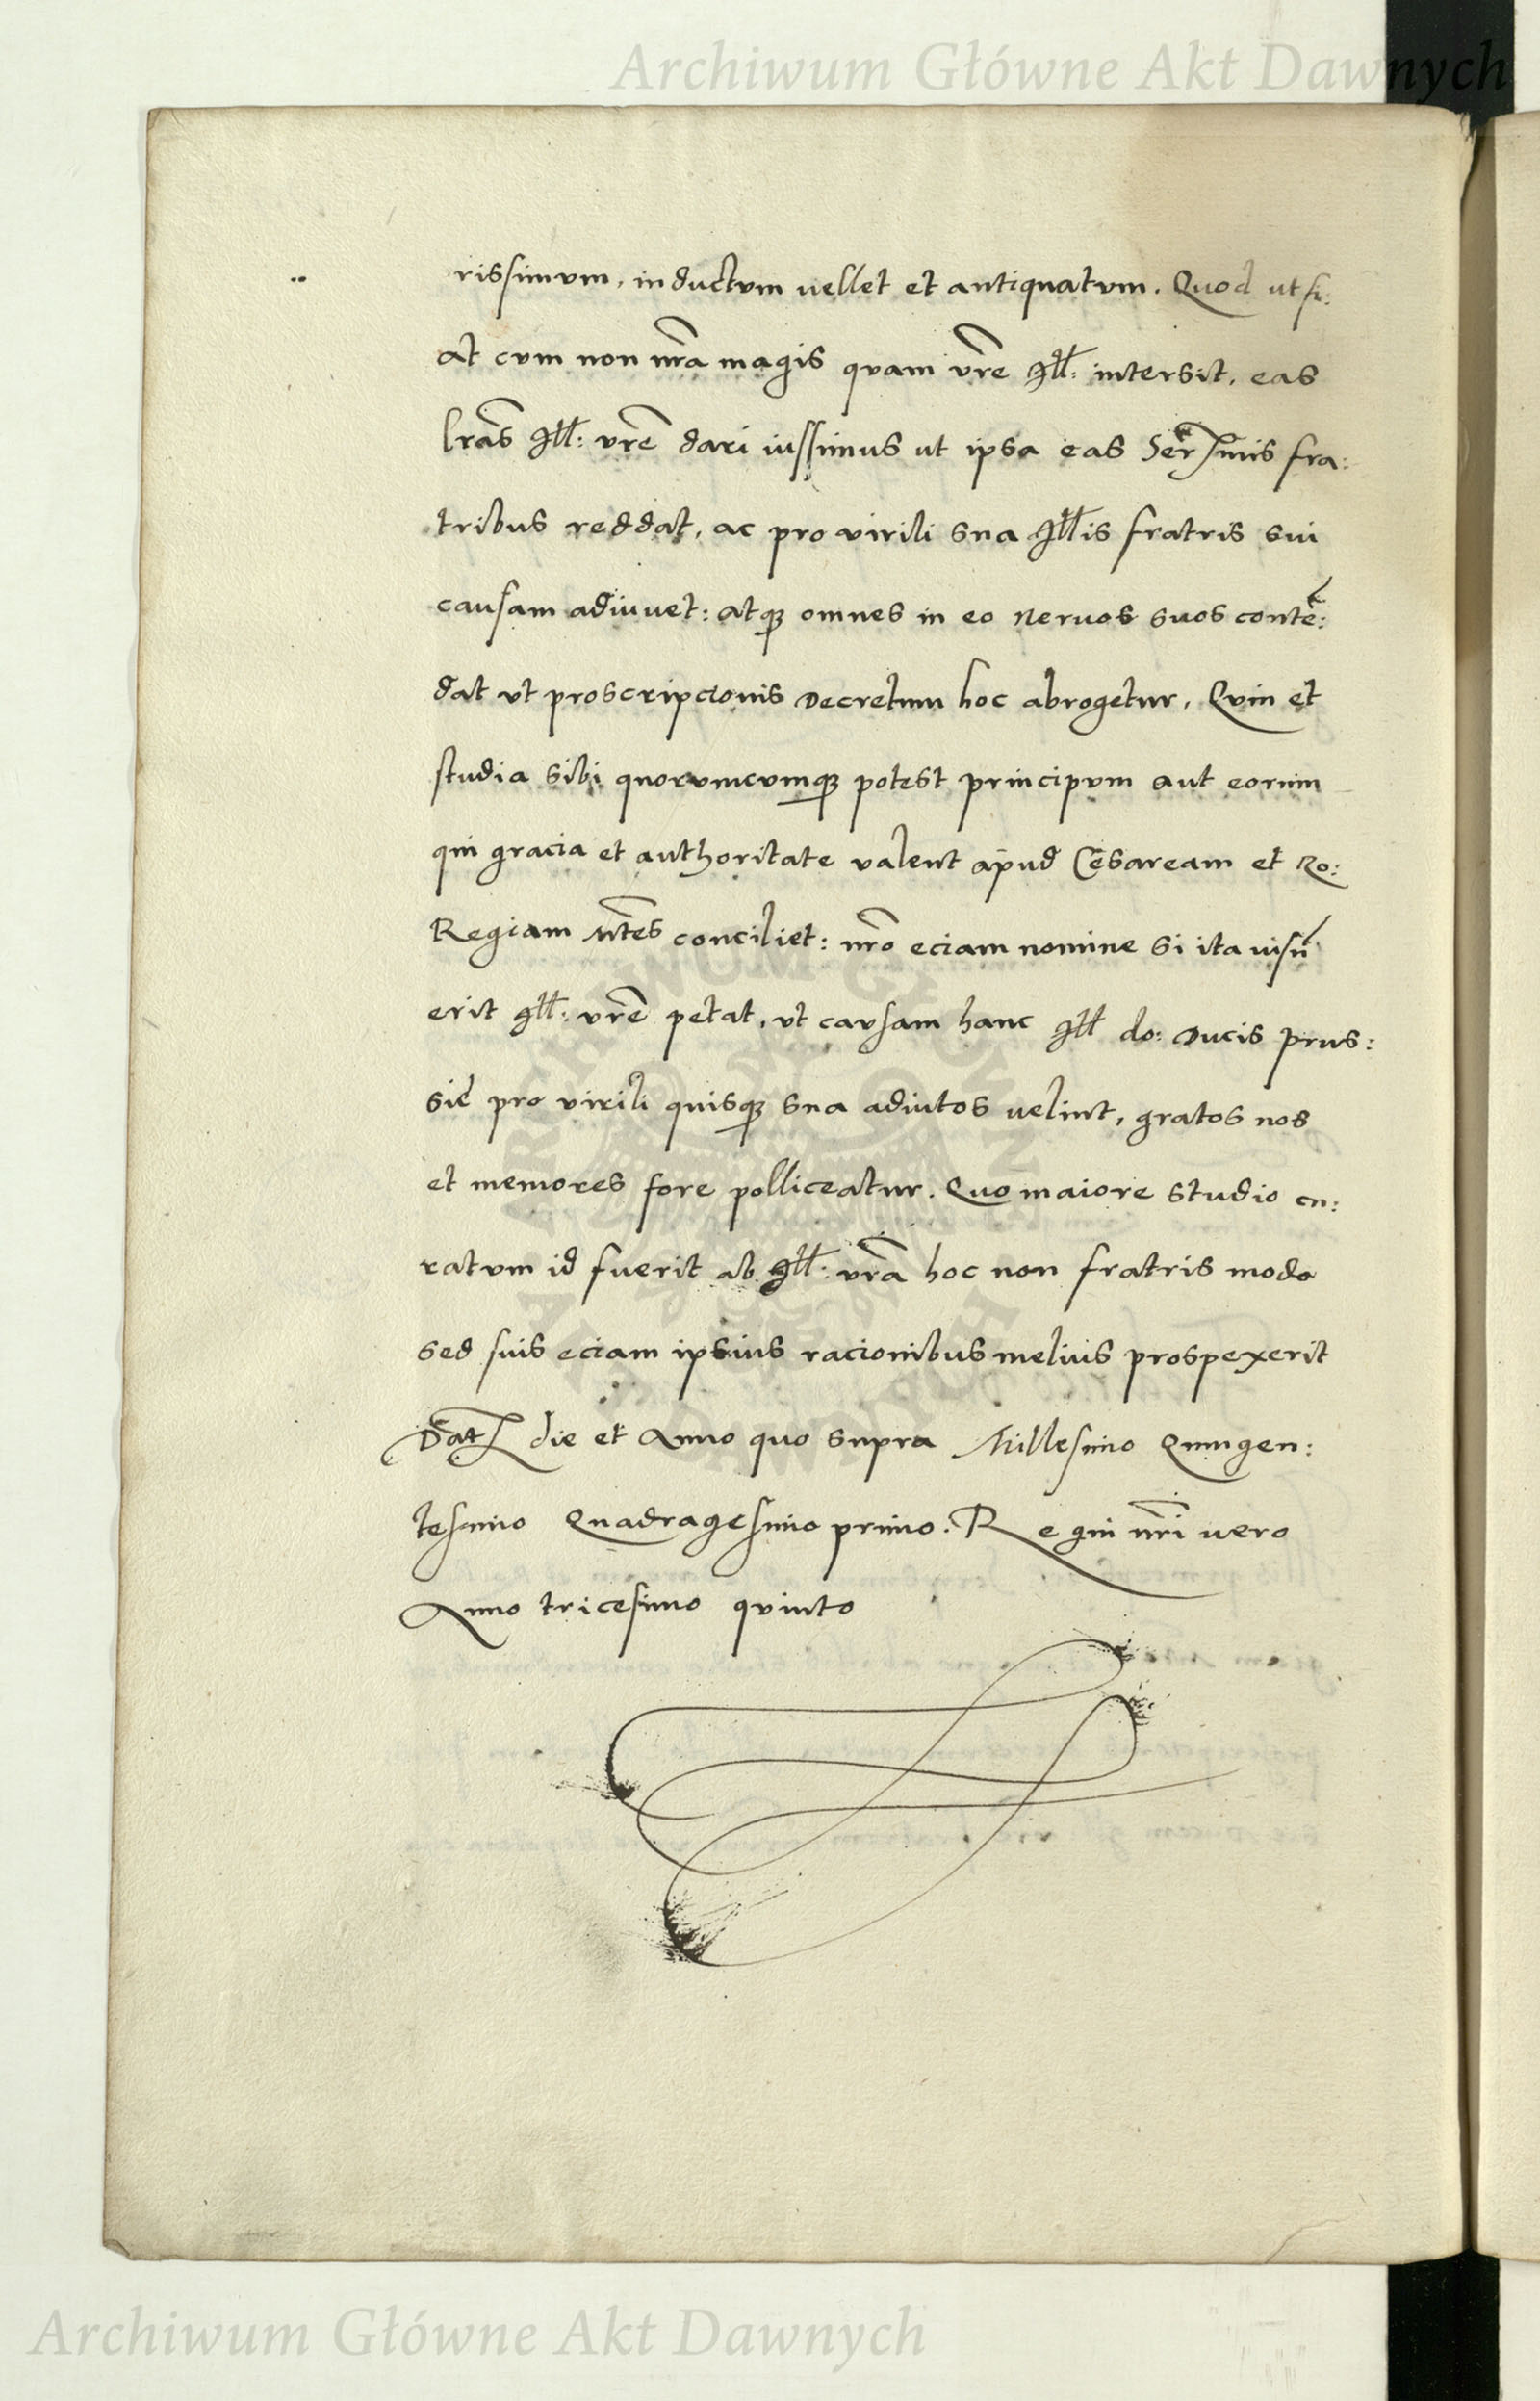 Archiwum Główne Akt Dawnych
rissimum, inductum vellet et antiquatum. Quod ut fi:
at cum non nrã magis quam vrẽ Ill: intersit, eas
lrãs Ill: vrẽ dari iussimus ut ipsa eas Sermis fra:
tribus reddat, ac pro virili sua Illis fratris sui
causam adiuvet: atq; omnes in eo nervos suos contẽ:
dat ut proscripcionis Decretum hoc abrogetur, Quin et
studia sibi quorumcumq; potest principum aut eorum
qui gracia et authoritate valent apud Cesaream et Ro:
Regiam Mtes conciliet: nrõ eciam nomine si ita visũ
erit Ill: vrẽ petat, ut causam hanc Ill do: Ducis Prus:
sie pro virili quisq; sua adiutos velint, gratos nos
et memores fore polliceatur. Quo maiore studio cu:
ratum id fuerit ab Ill: vrã hoc non fratris modo
sed suis eciam ipsius racionibus melius prospexerit
Dat die et Anno quo supra Millesimo Quingen:
tesimo Quadragesimo primo. Regni nrĩ vero
Anno tricesimo quinto
ARCHIWUM GŁÓWNE AKT DAWNYCH
Archiwum Główne Akt Dawnych